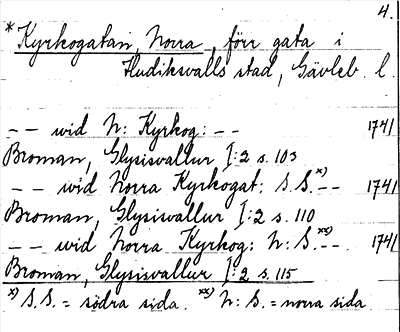 4.
*Kyrkogatan, Norra, förr gata i
Hudiksvalls stad, Gävleb. l.
-- wid N: Kyrkog: -- 1741
Broman, Glysisvallur I:2 s. 103
-- wid Norra Kyrkogat: S.S.x) -- 1741
Broman, Glysisvallur I:2 s. 110
-- wid Norra Kyrkog: N: S.xx) -- 1741
Broman, Glysisvallur I:2 s. 115
x) S.S. = södra sida. xx) N: S. = norra sida